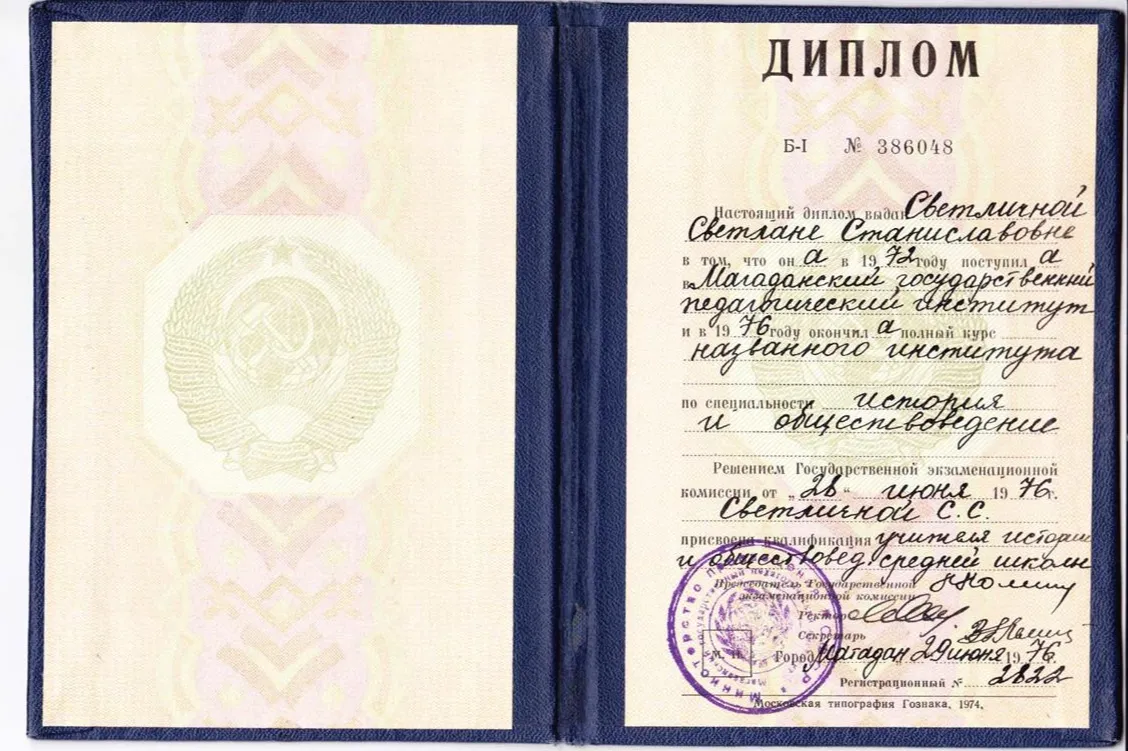 ДИПЛОМ
Б-I № 386048
Настоящий диплом выдан Светличной
Светлане Станиславовне
в том, что он а в 1972 году поступил а
в Магаданский государственный
педагогический институт
и в 1976 году окончил а полный курс
названного института
по специальности история
и обществоведение
Решением Государственной экзаменационной
комиссии от „28“ июня 1976 г.
Светличной С.С.
присвоена квалификация учителя истории
и обществовед. средней школы
Председатель Государственной
экзаменационной комиссии
Ректор
Секретарь
Город Магадан 29 июня 1976
Регистрационный № 2822
Московская типография Гознака, 1974.